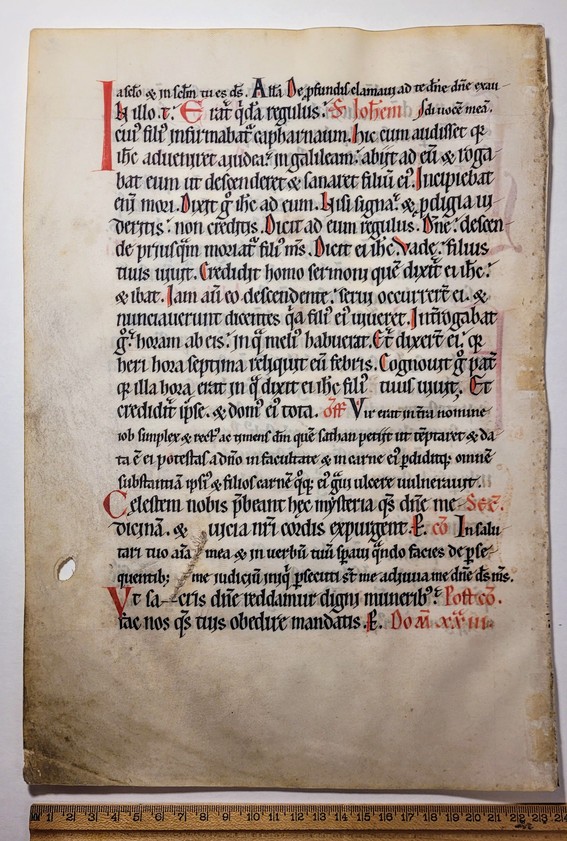 in sclo & in sclm tu es ds. Alla De pfundis clamaui ad te dne dne exau
In illo t̄: Erat q̄da regulus: S Iohem sdi uocē meā.
cui᷒ fili᷒ infirmabat᷑ capharnaum. hic cum audisset q̄
ihc adueniret a iudea in galileam: abijt ad eū & roga
bat eum ut descenderet & sanaret filiū ei᷒. Incipiebat
enī mori. Dixit g̊ ihc ad eum. Nisi signa & pdigia ui
deritis: non creditis. Dicit ad eum regulus. Dn̄e: descen
de priusq̄m moriat᷑ fili᷒ m̄s. Dicit ei ihc. Vade: filius
tuus uiuit. Credidit homo sermoni quē dixit ei ihc:
& ibat. Iam aū eo descendente: serui occurrer̄t ei. &
nunciauerunt dicentes q̄a fili᷒ ei᷒ uiueret. Int̄rogabat
g̊ horam ab eis: in q̄ meli᷒ habuerat. Et dixer̄t ei: q̄
heri hora septima reliquit eū febris. Cognouit g̊ pat̄
q̄ illa hora erat in q̄ dixit ei ihc fili᷒ tuus uiuit. Et
credidit ipse. & dom᷒ ei᷒ tota. off Vir erat in t̄ra nomine
iob simplex & rect᷒ ac timens dm̄ quē sathan petijt ut tēptaret & da
ta ē ei potestas a dn̄o in facultate & in carne ei᷒ pdiditq; omnē
substantiam ipsi᷒ & filios carnē q̄q; ei᷒ g̊ui ulcere uulnerauit.
Celestem nobis p̄beant hec mysteria qs dn̄e me Sec̄.
dicinā. & uicia nr̄i cordis expurgent. P. cō In salu
tari tuo aīa mea & in uerbū tuū spaui q̄ndo facies de pse
quentib; me iudiciū iniq̄ psecuti st̄ me adiuua me dn̄e ds m̄s.
Vt sacris dn̄e reddamur digni munerib᷒: Postcō.
fac nos qs tuis obedire mandatis. P. Dom̄ xxiii
1 2 3 4 5 6 7 8 9 10 11 12 13 14 15 16 17 18 19 20 21 22 23 24